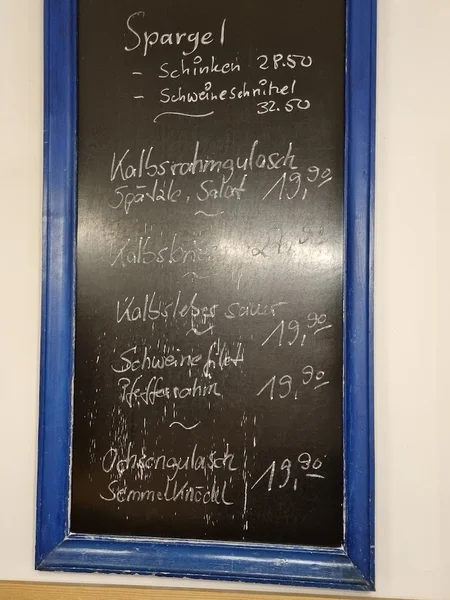 Spargel
- Schinken 28.50
- Schweineschnitzel
32.50
Kalbsrahmgulasch
Spätzle, Salat 19,90
Kalbsleber sauer
19,90
Schweinefilet
Pfefferrahm 19,90
Ochsengulasch
Semmelknödel 19,90